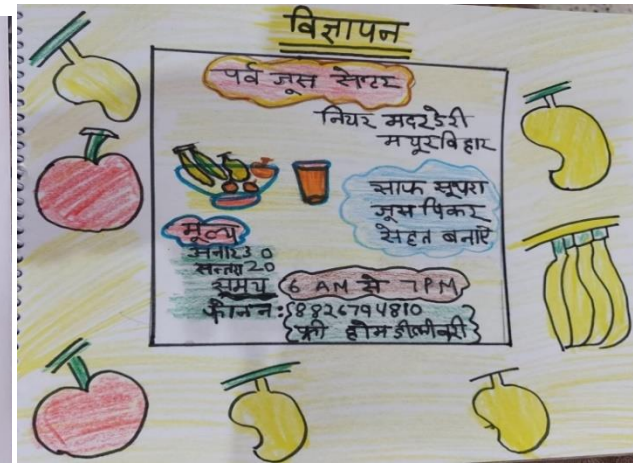 विज्ञापन
पर्व जूस सेन्टर
नियर मदरडेरी
मयूरविहार
साफ सूथरा
जूस पिकर
सेहत बनाएँ
मूल्य
अनार 30
सन्तरा 20
समय 6 AM से 7 PM
फोन न: 8826794810
फ्री होम डीलीवरी